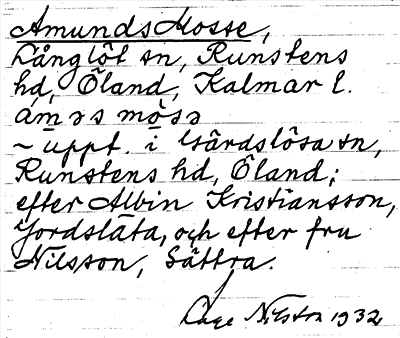 Amunds Mosse,
Långlöt sn, Runstens
hd, Öland, Kalmar l.
ám̲ə s mo̲sə
~ uppt. i Gärdslösa sn,
Runstens hd, Öland;
efter Albin Kristiansson,
Jordsläta, och efter fru
Nilsson, Sättra.
Åge Nilsson 1932